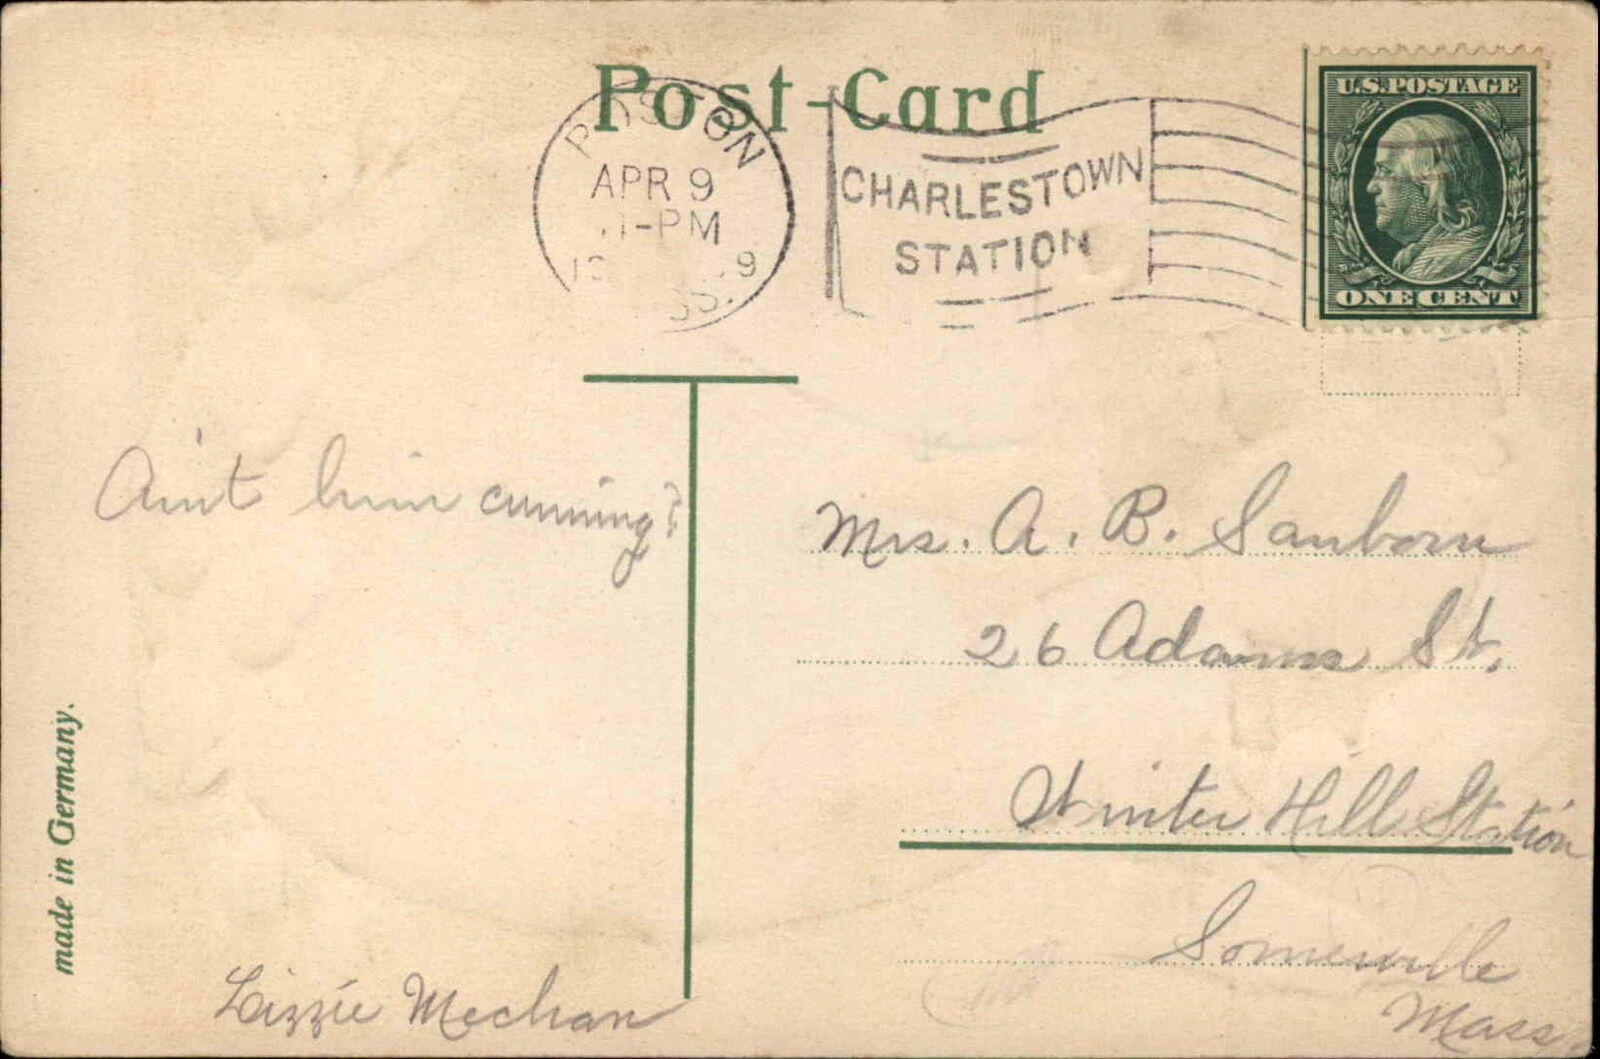 Post-Card
BOSTON
APR 9
11-PM
CHARLESTOWN
STATION
U.S. POSTAGE
ONE CENT
Ain't him cunning?
Mrs. A. B. Sanborn
26 Adams St.
Winter Hill Station
Somerville
Mass
Lizzie Meehan
made in Germany.